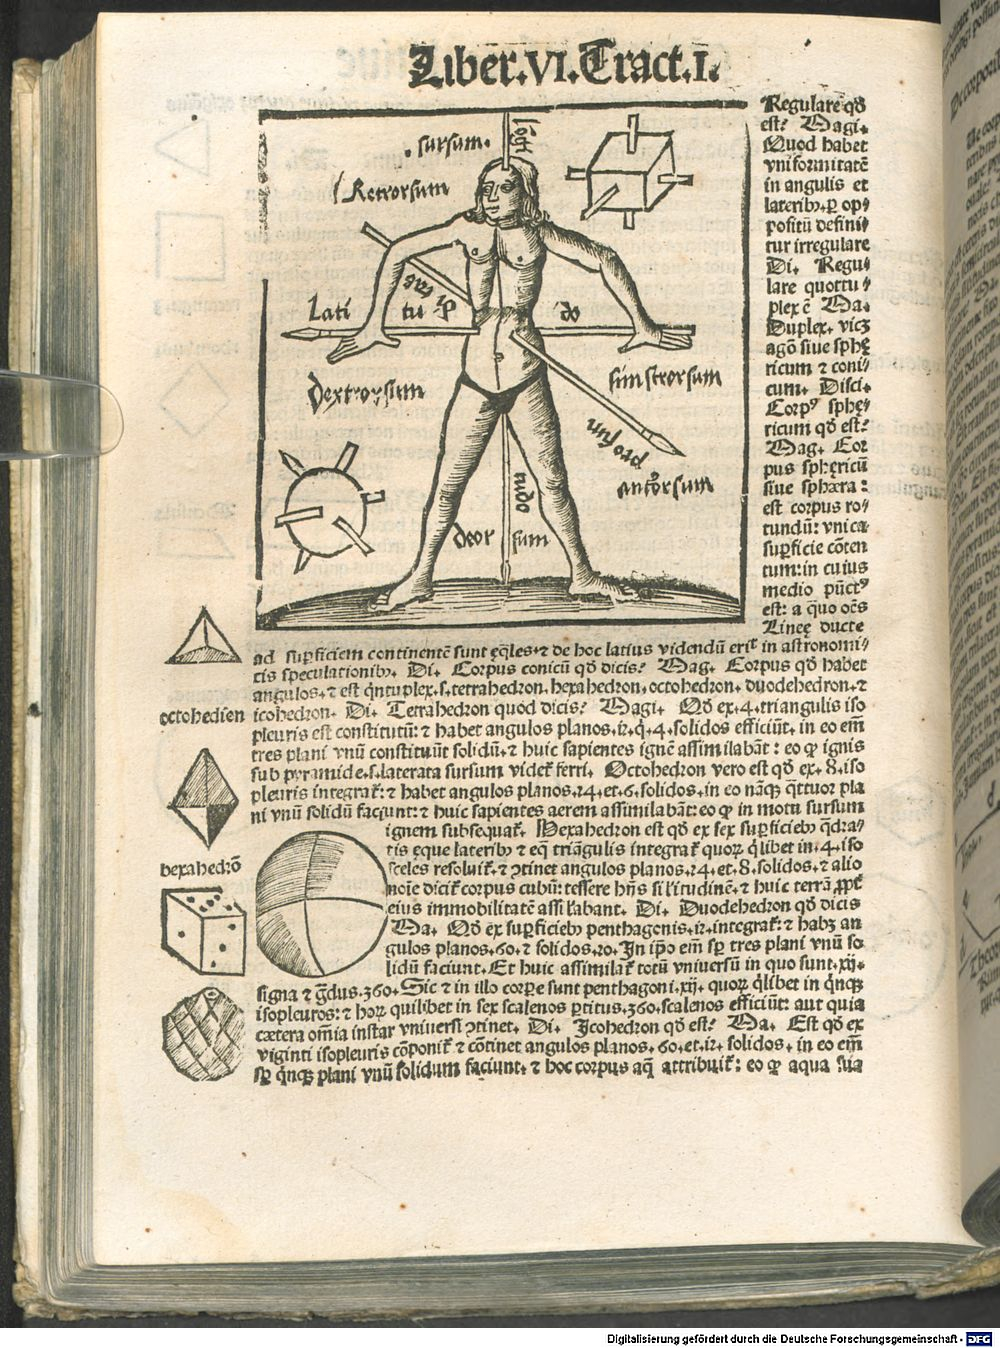 Liber.VI.Tract.I.
Regulare qd̄
est? Magi.
Quod habet
vniformitatē
in angulis et
laterib9. ꝑ op⸗
positū defini⸗
tur irregulare
Di. Regu⸗
lare quottu⸗
plex ē Ma.
Duplex. vicꝫ
agō siue sphę
ricum ⁊ coni⸗
cum. Disci.
Corp9 sphę⸗
ricum qd̄ est?
Mag. Cor
pus sphęricū
siue sphæra:
est corpus ro⸗
tundū: vnica
suꝑficie cōten
tum: in cuius
medio pūct9
est: a quo oēs
Lineę ducte
longi
sursum.
Retrorsum
Lati
tu
do
dextrorsum
sinistrorsum
profun
antrorsum
deor
sum
tudo
ad suꝑficiem continentē sunt ęq̄les. ⁊ de hoc latius videndū erit in astronomi⸗
cis speculationib9. Di. Corpus conicū qd̄ dicis? Mag. Corpus qd̄ habet
angulos. ⁊ est qntuplex. s. tetrahedron. hexahedron. octohedron. duodehedron. ⁊
octohedren
icohedron. Di. Tetrahedron quod dicis? Magi. Qd̄ ex. 4. triangulis iso
pleuris est constitutū: ⁊ habet angulos planos. 12. q̄. 4. solidos efficiūt. in eo em̄
tres plani vnū constituūt solidū. ⁊ huic sapientes ignē assimilabāt: eo ꝙ ignis
sub pyramide. s. laterata sursum videt̄ ferri. Octohedron vero est qd̄ ex. 8. iso
pleuris integrat̄: ⁊ habet angulos planos. 24. et. 6. solidos. in eo nāqꝫ q̄ttuor pla
ni vnū solidū faciunt: ⁊ huic sapientes aerem assimilabāt: eo ꝙ in motu sursum
ignem subsequat̄. Hexahedron est qd̄ ex sex suꝑficieb9 q̄dra⸗
tis ęque laterib9 ⁊ eq̄ triāngulis integrat̄ quoꝝ q̄libet in. 4. iso
hexahedrō
sceles resoluit̄. ⁊ ꝯtinet angulos planos. 24. et. 8. solidos. ⁊ alio
noīe dicit̄ corpus cubū: tessere hn̄s sil'itudinē. ⁊ huic terrā ꝓpt̄
eius immobilitatē assil'abant. Di. Duodehedron qd̄ dicis
Ma. Qd̄ ex suꝑficieb9 penthagonis. 12. integrat̄: ⁊ habꝫ an
gulos planos. 60. ⁊ solidos. 20. In ip̄o em̄ sꝑ tres plani vnū so
lidū faciunt. Et huic assimilat̄ totū vniuersū in quo sunt. xij.
signa ⁊ gdus. 360. Sic ⁊ in illo corꝑe sunt penthagoni. xij. quoꝝ q̄libet in q̄nqꝫ
isopleuros: ⁊ hoꝝ quilibet in sex scalenos ꝑtitus. 360. scalenos efficiūt: aut quia
cætera om̄ia instar vniuersi ꝯtinet. Di. Icohedron qd̄ est? Ma. Est qd̄ ex
viginti isopleuris cōponit̄ ⁊ cōtinet angulos planos. 60. et. 12. solidos. in eo em̄
sꝑ q̄nqꝫ plani vnū solidum faciunt. ⁊ hoc corpus aq̄ attribuit̄: eo ꝙ aqua sua
Digitalisierung gefördert durch die Deutsche Forschungsgemeinschaft - DFG